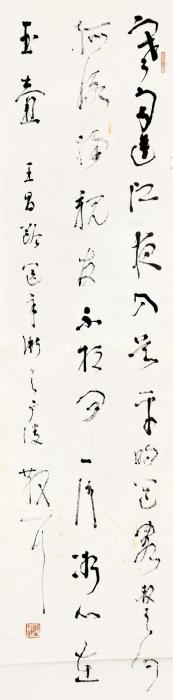 寒雨連江夜入吳平明送客楚山
孤洛陽親友如相問一片冰心在
玉壺 王昌齡送辛漸之廣陵 散耳